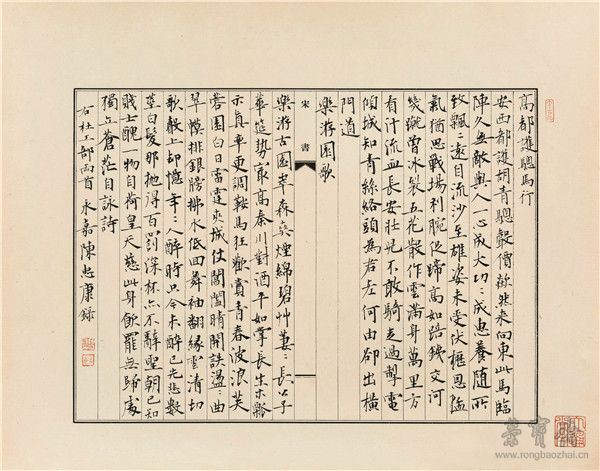 高都護驄馬行
安西都護胡青驄聲價欻然來向東此馬臨
陣久無敵與人一心成大功〻成惠養隨所
致飄〻遠自流沙至雄姿未受伏櫪恩猛
氣猶思戰場利腕促蹄高如踣鐵交河
幾蹴曾冰裂五花散作雲滿身萬里方
看汗流血長安壯兒不敢騎走過掣電
傾城知青絲絡頭為君老何由卻出橫
門道
樂游園歌
宋書
樂游古園崒森爽煙綿碧艸萋〻長公子
華筵勢最高秦川對酒平如掌長生木瓢
示真率更調鞍馬狂歡賞青春波浪芙
蓉園白日雷霆夾城仗閶闔晴開詄盪〻曲
翠幙排銀牓拂水低回舞袖翻緣雲清切
歌聲上却憶年〻人醉時只今未醉已先悲數
莖白髮那拋得百罰深杯亦不辭聖朝已知
賤士醜一物自荷皇天慈此身飲罷無歸處
獨立蒼茫自詠詩
右杜工部兩首 永嘉陳志康錄
榮寶齋
www.rongbaozhai.cn